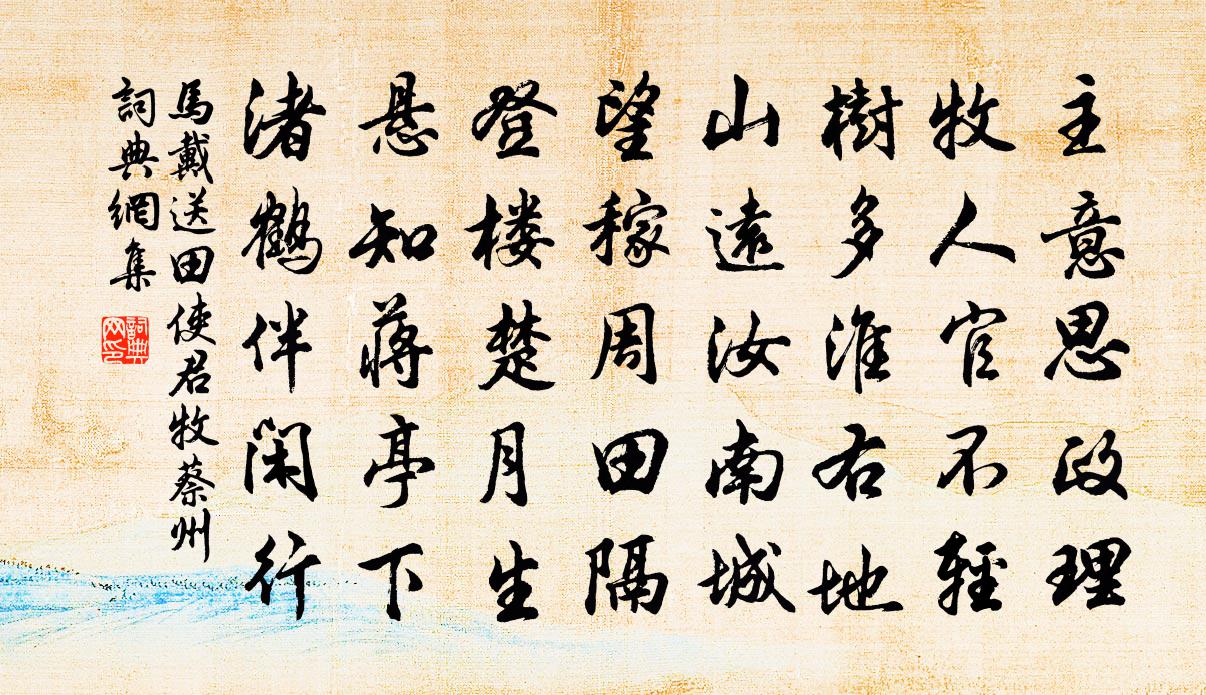 主意思政理
牧人官不輕
樹多淮右地
山遠汝南城
望稼周田隔
登楼楚月生
悬知蒋亭下
渚鹤伴闲行
馬戴送田使君牧蔡州
詞典網集
詞典
网印